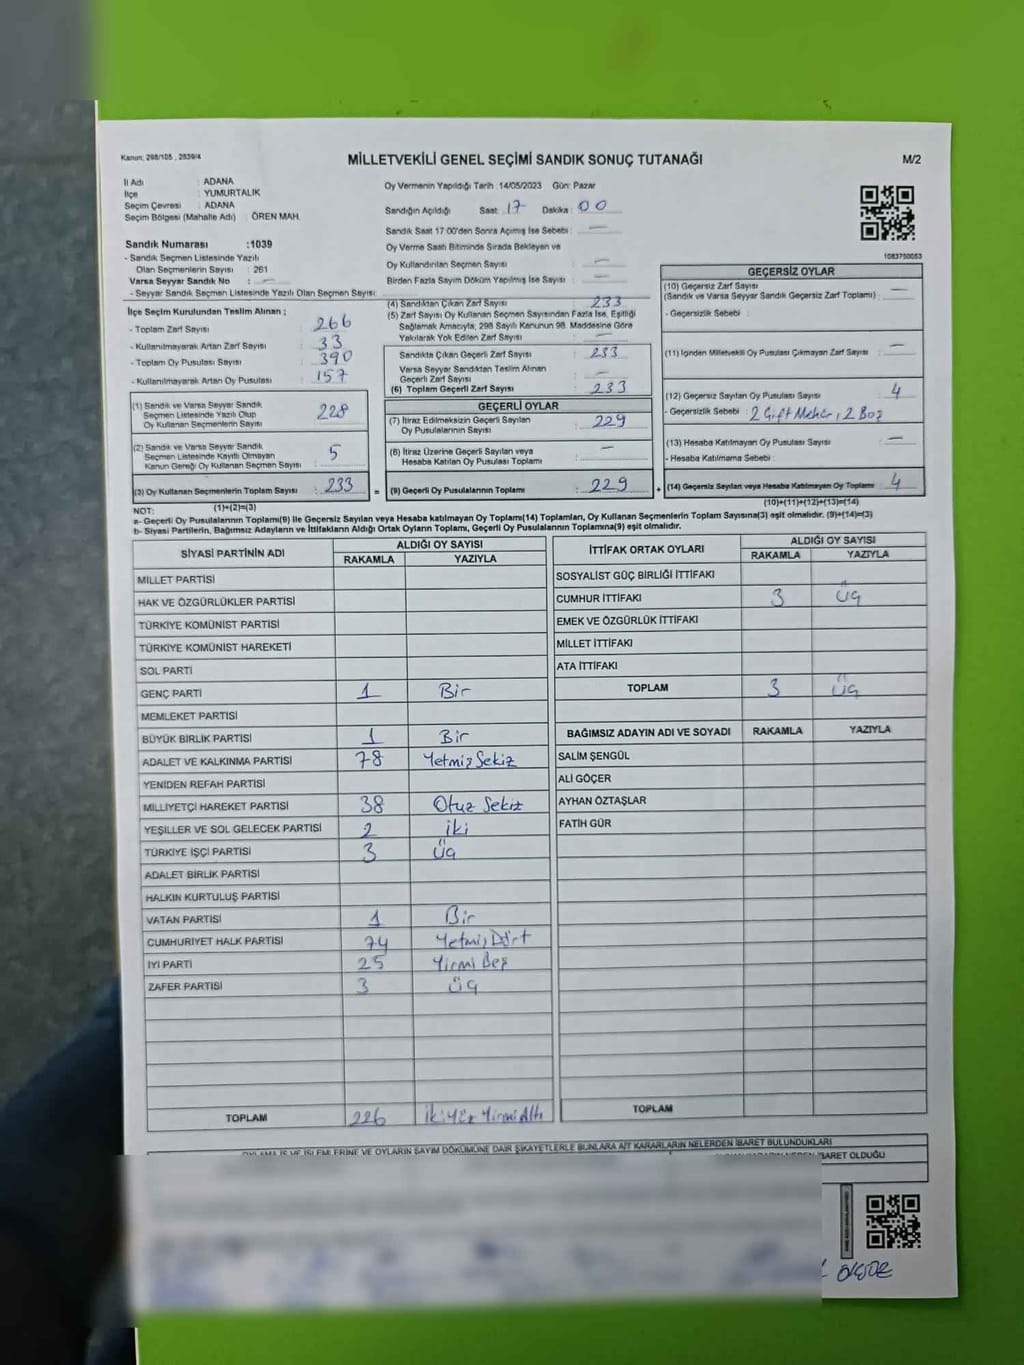 Kanun: 298/105 , 2839/4
MİLLETVEKİLİ GENEL SEÇİMİ SANDIK SONUÇ TUTANAĞI
M/2
İl Adı : ADANA
İlçe : YUMURTALIK
Seçim Çevresi : ADANA
Seçim Bölgesi (Mahalle Adı) : ÖREN MAH.
Sandık Numarası :1039
- Sandık Seçmen Listesinde Yazılı
Olan Seçmenlerin Sayısı : 261
Varsa Seyyar Sandık No : —
- Seyyar Sandık Seçmen Listesinde Yazılı Olan Seçmen Sayısı
Oy Vermenin Yapıldığı Tarih :14/05/2023 Gün: Pazar
Sandığın Açıldığı Saat : 17 Dakika : 00
Sandık Saat 17:00'den Sonra Açılmış İse Sebebi : —
Oy Verme Saati Bitiminde Sırada Bekleyen ve
Oy Kullandırılan Seçmen Sayısı : —
Birden Fazla Sayım Döküm Yapılmış İse Sayısı : —
1083750053
İlçe Seçim Kurulundan Teslim Alınan ;
- Toplam Zarf Sayısı : 266
- Kullanılmayarak Artan Zarf Sayısı : 33
- Toplam Oy Pusulası Sayısı : 390
- Kullanılmayarak Artan Oy Pusulası : 157
(1) Sandık ve Varsa Seyyar Sandık
Seçmen Listesinde Yazılı Olup
Oy Kullanan Seçmenlerin Sayısı : 228
(2) Sandık ve Varsa Seyyar Sandık
Seçmen Listesinde Kayıtlı Olmayan
Kanun Gereği Oy Kullanan Seçmen Sayısı : 5
(3) Oy Kullanan Seçmenlerin Toplam Sayısı : 233
(1)+(2)=(3)
(4) Sandıktan Çıkan Zarf Sayısı : 233
(5) Zarf Sayısı Oy Kullanan Seçmen Sayısından Fazla İse, Eşitliği
Sağlamak Amacıyla, 298 Sayılı Kanunun 98. Maddesine Göre
Yakılarak Yok Edilen Zarf Sayısı : —
Sandıkta Çıkan Geçerli Zarf Sayısı : 233
Varsa Seyyar Sandıktan Teslim Alınan
Geçerli Zarf Sayısı : —
(6) Toplam Geçerli Zarf Sayısı : 233
GEÇERLİ OYLAR
(7) İtiraz Edilmeksizin Geçerli Sayılan
Oy Pusulalarının Sayısı : 229
(8) İtiraz Üzerine Geçerli Sayılan veya
Hesaba Katılan Oy Pusulası Toplamı : —
= (9) Geçerli Oy Pusulalarının Toplamı : 229
GEÇERSİZ OYLAR
(10) Geçersiz Zarf Sayısı
(Sandık ve Varsa Seyyar Sandık Geçersiz Zarf Toplamı) : —
- Geçersizlik Sebebi :
(11) İçinden Milletvekili Oy Pusulası Çıkmayan Zarf Sayısı : —
(12) Geçersiz Sayılan Oy Pusulası Sayısı : 4
- Geçersizlik Sebebi : 2 Çift Mühür, 2 Boş
(13) Hesaba Katılmayan Oy Pusulası Sayısı : —
- Hesaba Katılmama Sebebi :
+ (14) Geçersiz Sayılan veya Hesaba Katılmayan Oy Toplamı : 4
(10)+(11)+(12)+(13)=(14)
NOT:
a- Geçerli Oy Pusulalarının Toplamı(9) ile Geçersiz Sayılan veya Hesaba katılmayan Oy Toplamı(14) Toplamları, Oy Kullanan Seçmenlerin Toplam Sayısına(3) eşit olmalıdır. (9)+(14)=(3)
b- Siyasi Partilerin, Bağımsız Adayların ve İttifakların Aldığı Ortak Oyların Toplamı, Geçerli Oy Pusulalarının Toplamına(9) eşit olmalıdır.
SİYASİ PARTİNİN ADI ALDIĞI OY SAYISI
RAKAMLA YAZIYLA
MİLLET PARTİSİ
HAK VE ÖZGÜRLÜKLER PARTİSİ
TÜRKİYE KOMÜNİST PARTİSİ
TÜRKİYE KOMÜNİST HAREKETİ
SOL PARTİ
GENÇ PARTİ 1 Bir
MEMLEKET PARTİSİ
BÜYÜK BİRLİK PARTİSİ 1 Bir
ADALET VE KALKINMA PARTİSİ 78 Yetmiş Sekiz
YENİDEN REFAH PARTİSİ
MİLLİYETÇİ HAREKET PARTİSİ 38 Otuz Sekiz
YEŞİLLER VE SOL GELECEK PARTİSİ 2 iki
TÜRKİYE İŞÇİ PARTİSİ 3 Üç
ADALET BİRLİK PARTİSİ
HALKIN KURTULUŞ PARTİSİ
VATAN PARTİSİ 1 Bir
CUMHURİYET HALK PARTİSİ 74 Yetmiş Dört
İYİ PARTİ 25 Yirmi Beş
ZAFER PARTİSİ 3 Üç
TOPLAM 226 İki Yüz Yirmi Altı
İTTİFAK ORTAK OYLARI ALDIĞI OY SAYISI
RAKAMLA YAZIYLA
SOSYALİST GÜÇ BİRLİĞİ İTTİFAKI
CUMHUR İTTİFAKI 3 Üç
EMEK VE ÖZGÜRLÜK İTTİFAKI
MİLLET İTTİFAKI
ATA İTTİFAKI
TOPLAM 3 Üç
BAĞIMSIZ ADAYIN ADI VE SOYADI RAKAMLA YAZIYLA
SALİM ŞENGÜL
ALİ GÖÇER
AYHAN ÖZTAŞLAR
FATİH GÜR
TOPLAM
OYLAMA İŞ VE İŞLEMLERİNE VE OYLARIN SAYIM DÖKÜMÜNE DAİR ŞİKAYETLERLE BUNLARA AİT KARARLARIN NELERDEN İBARET BULUNDUKLARI
İBARET OLDUĞU